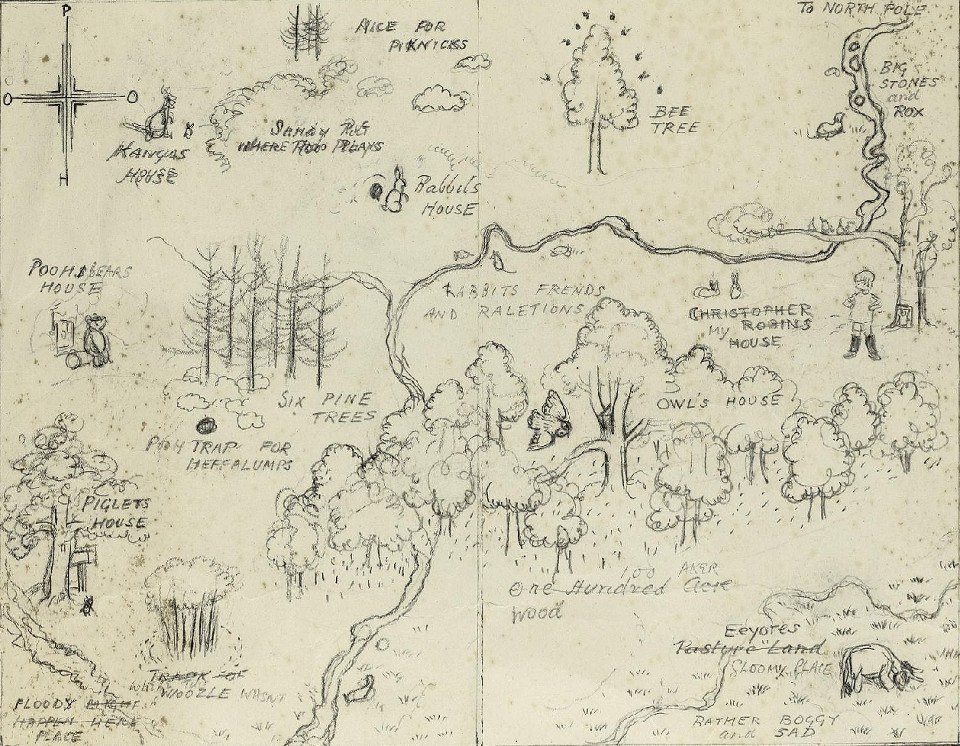 P
O
O
H
NICE FOR
PIKNICKS
TO NORTH POLE
BIG
STONES
and
ROX
BEE
TREE
KANGAS
HOUSE
SANDY PIT
WHERE ROO PLAYS
Rabbits
HOUSE
POOH BEARS
HOUSE
RABBITS FRENDS
AND RALETIONS
CHRISTOPHER
My ROBINS
HOUSE
SIX PINE
TREES
OWL'S HOUSE
POOH TRAP FOR
HEFFALUMPS
PIGLETS
HOUSE
100 AKER
One Hundred Acre
Wood
Eeyores
Pasture Land
GLOOMY PLACE
TRACK OF
WOOZLE WASNT
FLOODY MIGHT
HAPPEN HERE
PLACE
RATHER BOGGY
and SAD